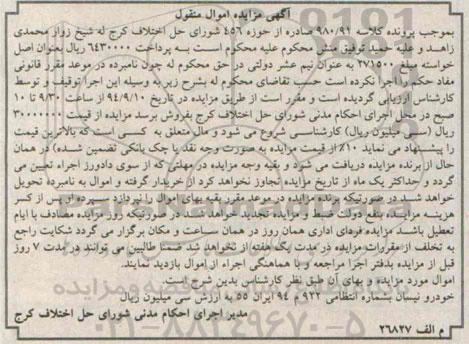 آگهی مزایده اموال منقول
بموجب پرونده کلاسه ۹۸۰/۹۱ صادره از حوزه ۴۵۷ شورای حل اختلاف کرج له شیخ زوار محمدی
زاهد و علیه حمید توفیق منش محکوم علیه محکوم است به پرداخت ۶۴۳۰۰۰۰ ریال بعنوان اصل
خواسته مبلغ ۲۷۱۵۰۰ به عنوان نیم عشر دولتی در حق محکوم له چون نامبرده در موعد مقرر قانونی
مفاد حکم را اجرا نکرده است حسب تقاضای محکوم له بشرح زیر به وسیله این اجرا توقیف و توسط
کارشناس ارزیابی گردیده است و مقرر است از طریق مزایده در تاریخ ۹۴/۹/۱۰ از ساعت ۹/۳۰ تا ۱۰
صبح در محل اجرای احکام مدنی شورای حل اختلاف کرج بفروش برسد مزایده از قیمت ۳۰۰۰۰۰۰۰
ریال (سی میلیون ریال) کارشناسی شروع می شود و مال متعلق به کسی است که بالاترین قیمت
را پیشنهاد می نماید ۱۰٪ از قیمت مزایده به صورت وجه نقد یا چک بانکی تضمین شده) در همان
حال از برنده مزایده دریافت می گردد و بقیه وجه مزایده در مهلتی که از سوی دادورز اجراء تعیین می
گردد و حداکثر یک ماه از تاریخ مزایده تجاوز نخواهد کرد از خریدار گرفته و اموال به نامبرده تحویل
خواهد شد در صورتیکه برنده مزایده در موعد مقرر بقیه بهای اموال را نپردازد سپرده او پس از کسر
هزینه مزایده بنفع دولت ضبط و مزایده تجدید خواهد شد در صورتیکه روز مزایده مصادف با ایام
تعطیل باشد مزایده فردای اداری همان روز در همان ساعت و مکان برگزار می گردد شکایت راجع
به تخلف از مقررات مزایده در مدت یک هفته از نخواهد شد ضمنا طالبین می توانند در مدت ۷ روز
قبل از مزایده بدفتر اجرا مراجعه و با هماهنگی اجراء از اموال بازدید نمایند.
اموال مورد مزایده و بهای آن طبق نظر کارشناس بدین شرح است.
خودرو نیسان بشماره انتظامی ۹۲۲ م ۹۴ ایران ۵۵ به ارزش سی میلیون ریال
مدیر اجرای احکام مدنی شورای حل اختلاف کرج
م الف ۲۶۸۲۷
۰۲۱-۸۸۳۴۹۶۷۰-۵